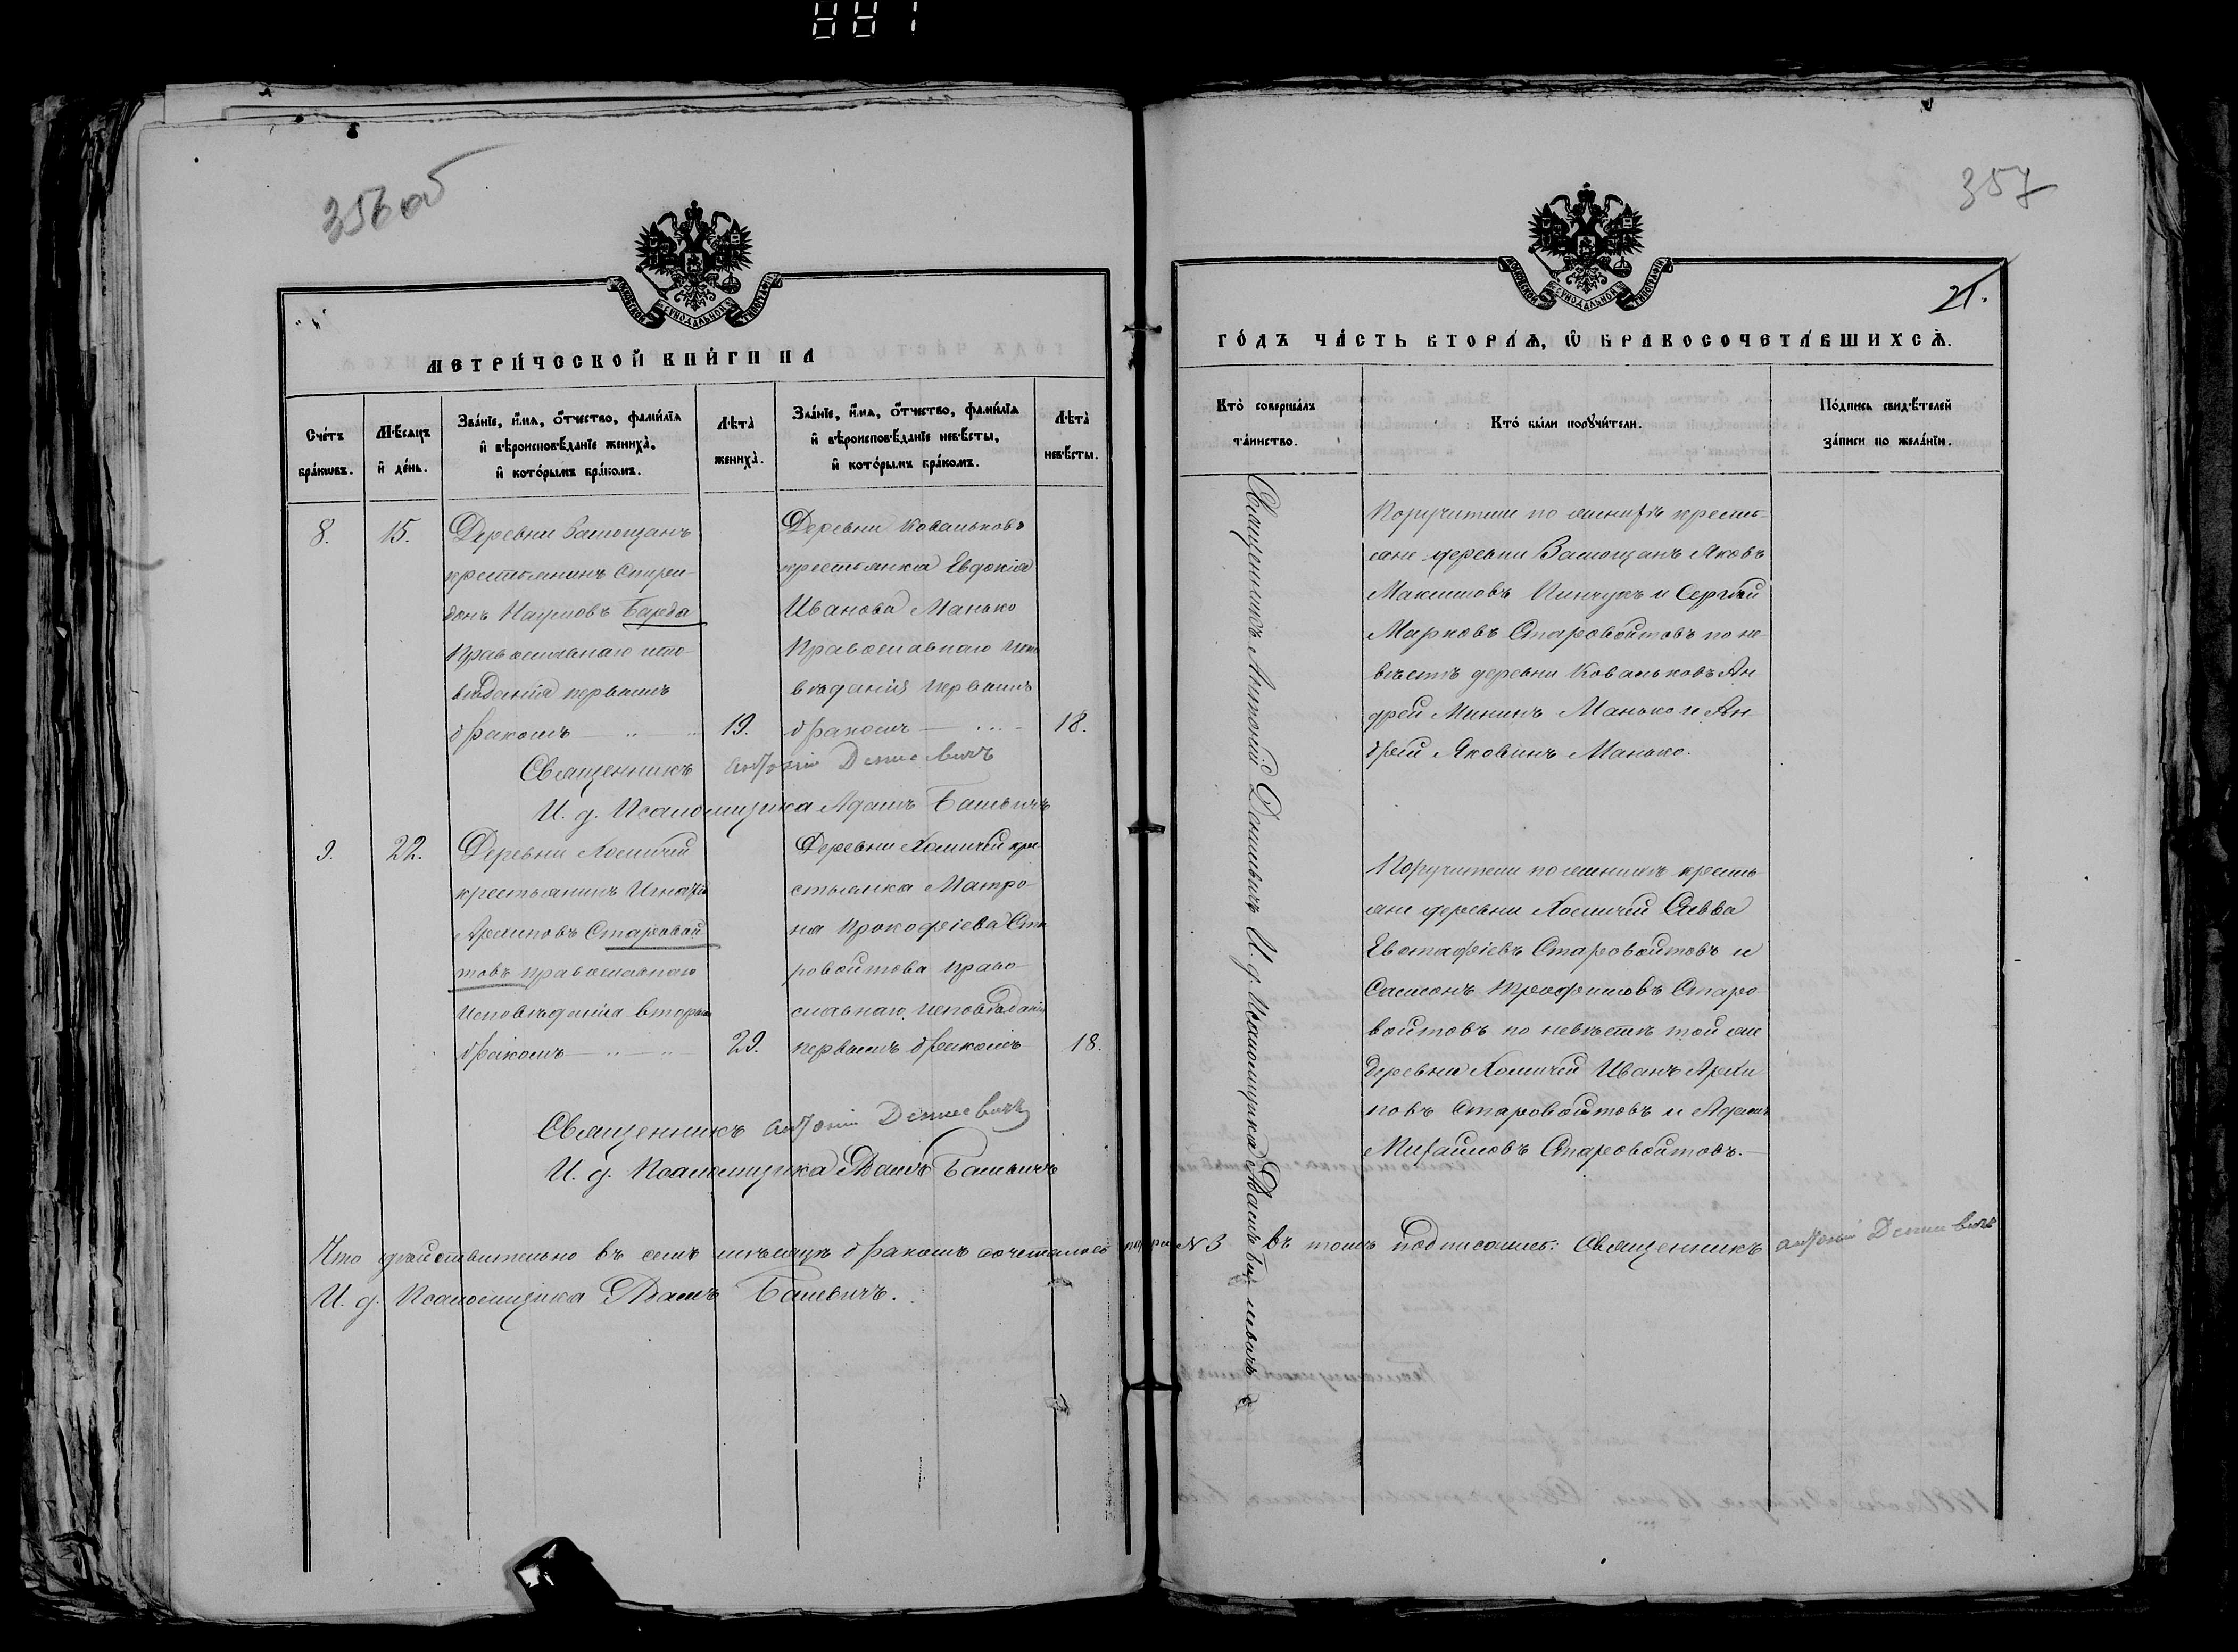 356 об
МЕТРИ́ЧЕСКОЙ КНИ́ГИ НА
Сче́тъ бра́ковъ.
Мѣ́сяцъ и҆ де́нь.
Зва́нїе, и҆́мя, ѻ҆́тчество, фами́лїя
и҆ вѣроисповѣ́данїе жениха̀,
и҆ кото́рымъ бра́комъ.
Лѣта̀ жениха̀.
Зва́нїе, и҆́мя, ѻ҆́тчество, фами́лїя
и҆ вѣроисповѣ́данїе невѣ́сты,
и҆ кото́рымъ бра́комъ.
Лѣта̀ невѣ́сты.
8.
15.
Деревни Замощанъ
крестьянинъ Спири-
донъ Наумовъ Барда
Православнаго испо-
вѣданія первымъ
бракомъ
19.
Деревни Ковальковъ
крестьянка Евдокія
Иванова Манько
Православнаго испо
вѣданія первымъ
бракомъ
18.
Священникъ Антоній
И. д. Псаломщика Адамъ Башевичъ
9.
22.
Деревни Хомичей
крестьянинъ Игнатій
Архиповъ Старовой
товъ православнаго
исповѣданія вторымъ
бракомъ
29.
Деревни Хомичей кре
стьянка Матро-
на Прокофіева Ста
ровойтова право-
славнаго исповѣданія
первымъ бракомъ
18.
Священникъ Антоній
И. д. Псаломщика Адамъ Башевичъ
Что дѣйствительно въ семъ мѣсяцѣ бракомъ сочеталось № 3 въ томъ подписомъ: Священникъ Антоній
И. д. Псаломщика Адамъ Башевичъ.
357
21.
ГО́ДЪ ЧА́СТЬ ВТОРА́Я, Ѽ БРАКОСОЧЕТА́ВШИХСЯ.
Кто̀ соверша́лъ
та́инство.
Кто̀ бы́ли поручи́тели.
По́дпись свидѣ́телей
за́писи по жела́нїю.
Священникъ Антоній И. д. Псаломщика Адамъ Башевичъ
Поручители по женихѣ кресть-
яне деревни Замощанъ Яковъ
Максимовъ Пинчукъ и Сергѣй
Марковъ Старовойтовъ по не-
вѣстѣ деревни Ковальковъ Ан
дрей Мининъ Манько и Ан-
дрей Яковинъ Манько.
Поручители по женихѣ кресть-
яне деревни Хомичей Савва
Евстафіевъ Старовойтовъ и
Самсонъ Трофимовъ Старо-
войтовъ по невѣстѣ той же
деревни Хомичей Иванъ Архи
повъ Старовойтовъ и Адамъ
Михайловъ Старовойтовъ.